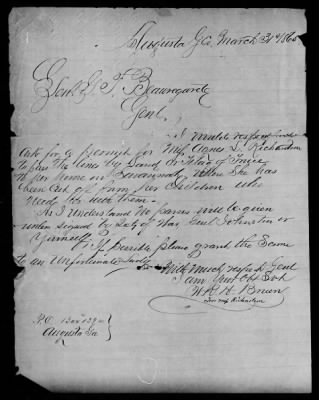 Augusta Ga. March 31st 1865
Genl. G. T. Beauregard
Genl.
I would respectfully
ask for a permit for Miss Agnes L. Richardson
to pass the lines by Land or Flag of Truce
to her home in Savannah where she has
been cut off from her Children who
need to be with them.
As I understand no passes will be given
unless signed by Secty of War, Genl Johnston or
Yourself
If possible please grant the same
to an unfortunate Lady
With much respect Genl
I am Your Obt Svt
Bruen
for Mrs Richardson
P.O. Box
Augusta Ga